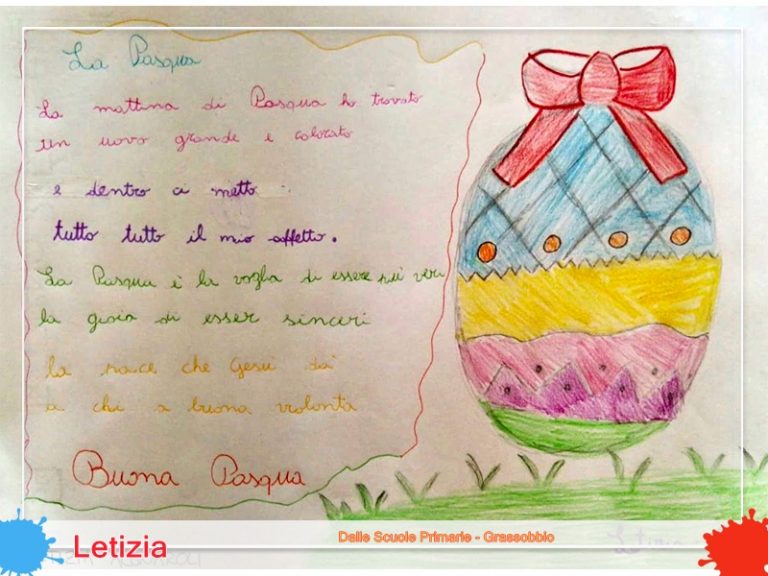 La Pasqua
La mattina di Pasqua ho trovato
un uovo grande e colorato
e dentro ci metto
tutto tutto il mio affetto.
La Pasqua è la voglia di essere più veri
la gioia di esser sinceri
la pace che Gesù dà
a chi a buona volontà
Buona Pasqua
Letizia
Dalle Scuole Primarie - Grassobbio
Letizia